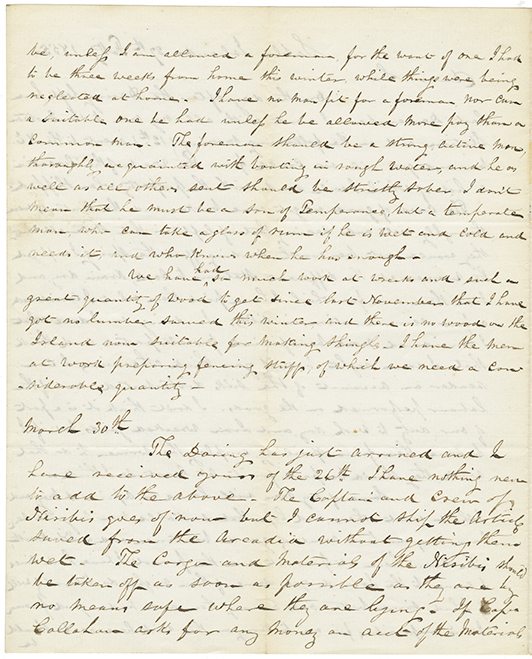 be, unless I am allowed a foreman for the want of one I had
to be three weeks from home this winter, while things were being
neglected at home. I have no man fit for a foreman nor can
a suitable one be had unless he be allowed more pay than a
common man. The foreman should be a strong active man
thoroughly acquainted with boating in rough water, and he as
well as all others sent should be strictly sober I don't
mean that he must be a son of Temperance, but a temperate
man who can take a glass of rum if he is wet and cold and
needs it, and who knows when he has enough.
We have had so much work at wrecks and such a
great quantity of wood to get since last November that I have
got no lumber sawed this winter and there is no wood on the
Island now suitable for making shingle. I have the men
at work preparing fencing stuff, of which we need a con
siderable quantity.
March 30th
The Daring has just arrived and I
have received yours of the 26th I have nothing new
to add to the above. The Captain and Crew of
Nisibis goes of now but I cannot ship the Articles
saved from the Arcadia without getting them
wet. The Cargo and materials of the Nisibis should
be taken off as soon as possible as they are by
no means safe where they are lying. If Capt
Callahan asks for any money on acct of the Materials